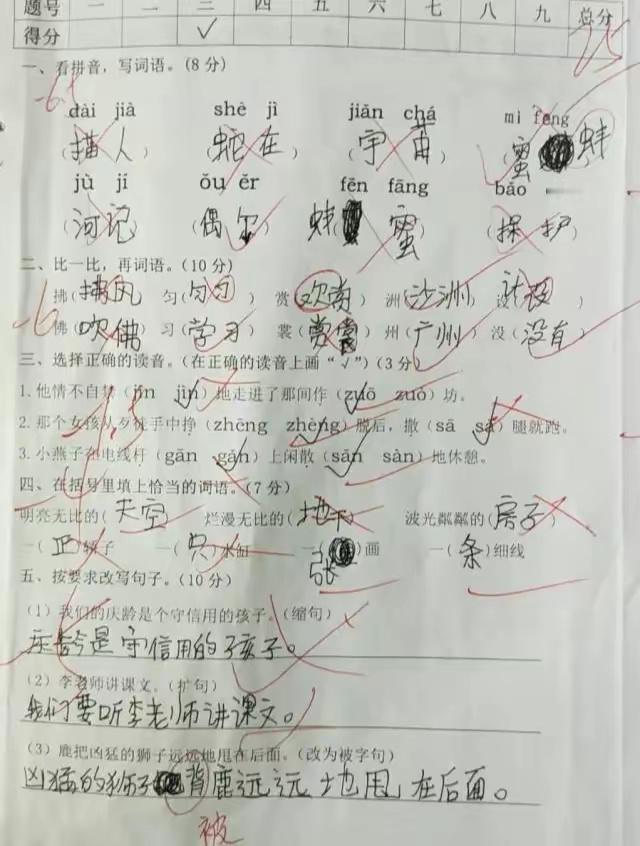 题号 一 二 三 四 五 六 七 八 九 总分
得分 √ 25
一、看拼音，写词语。(8分)
-6.5
dài jià shè jì jiān chá mì fēng
(描人) (蛇在) (宇苗) (蜜 蚌)
jù jí ǒu ěr fēn fāng bǎo
(河记) (偶尔) (蛛 蜜) (探护)
二、比一比，再词语。(10分)
-6
拂(拂风) 匀(匀习) 赏(欢赏) 洲(沙洲) 设(计设)
佛(吹佛) 习(学习) 裳(赏裳) 州(广州) 没(没有)
三、选择正确的读音。(在正确的读音上画“√”)(3分)
1.他情不自禁(jīn jìn√)地走进了那间作(zuō√ zuó)坊。
2.那个女孩从歹徒手中挣(zhēng zhèng√)脱后，撒(sā sǎ√)腿就跑。
3.小燕子在电线杆(gān gǎn√)上闲散(sǎn√ sàn)地休憩。
四、在括号里填上恰当的词语。(7分)
明亮无比的(天空) 烂漫无比的(地下) 波光粼粼的(房子)
一(正)轿子 一(只)水缸 一( )画 一(条)细线
张
五、按要求改写句子。(10分)
(1)我们的庆龄是个守信用的孩子。(缩句)
庆龄是守信用的孩子。
(2)李老师讲课文。(扩句)
我们要听李老师讲课文。
(3)鹿把凶猛的狮子远远地甩在后面。(改为被字句)
凶猛的狮子背鹿远远地甩在后面。
被